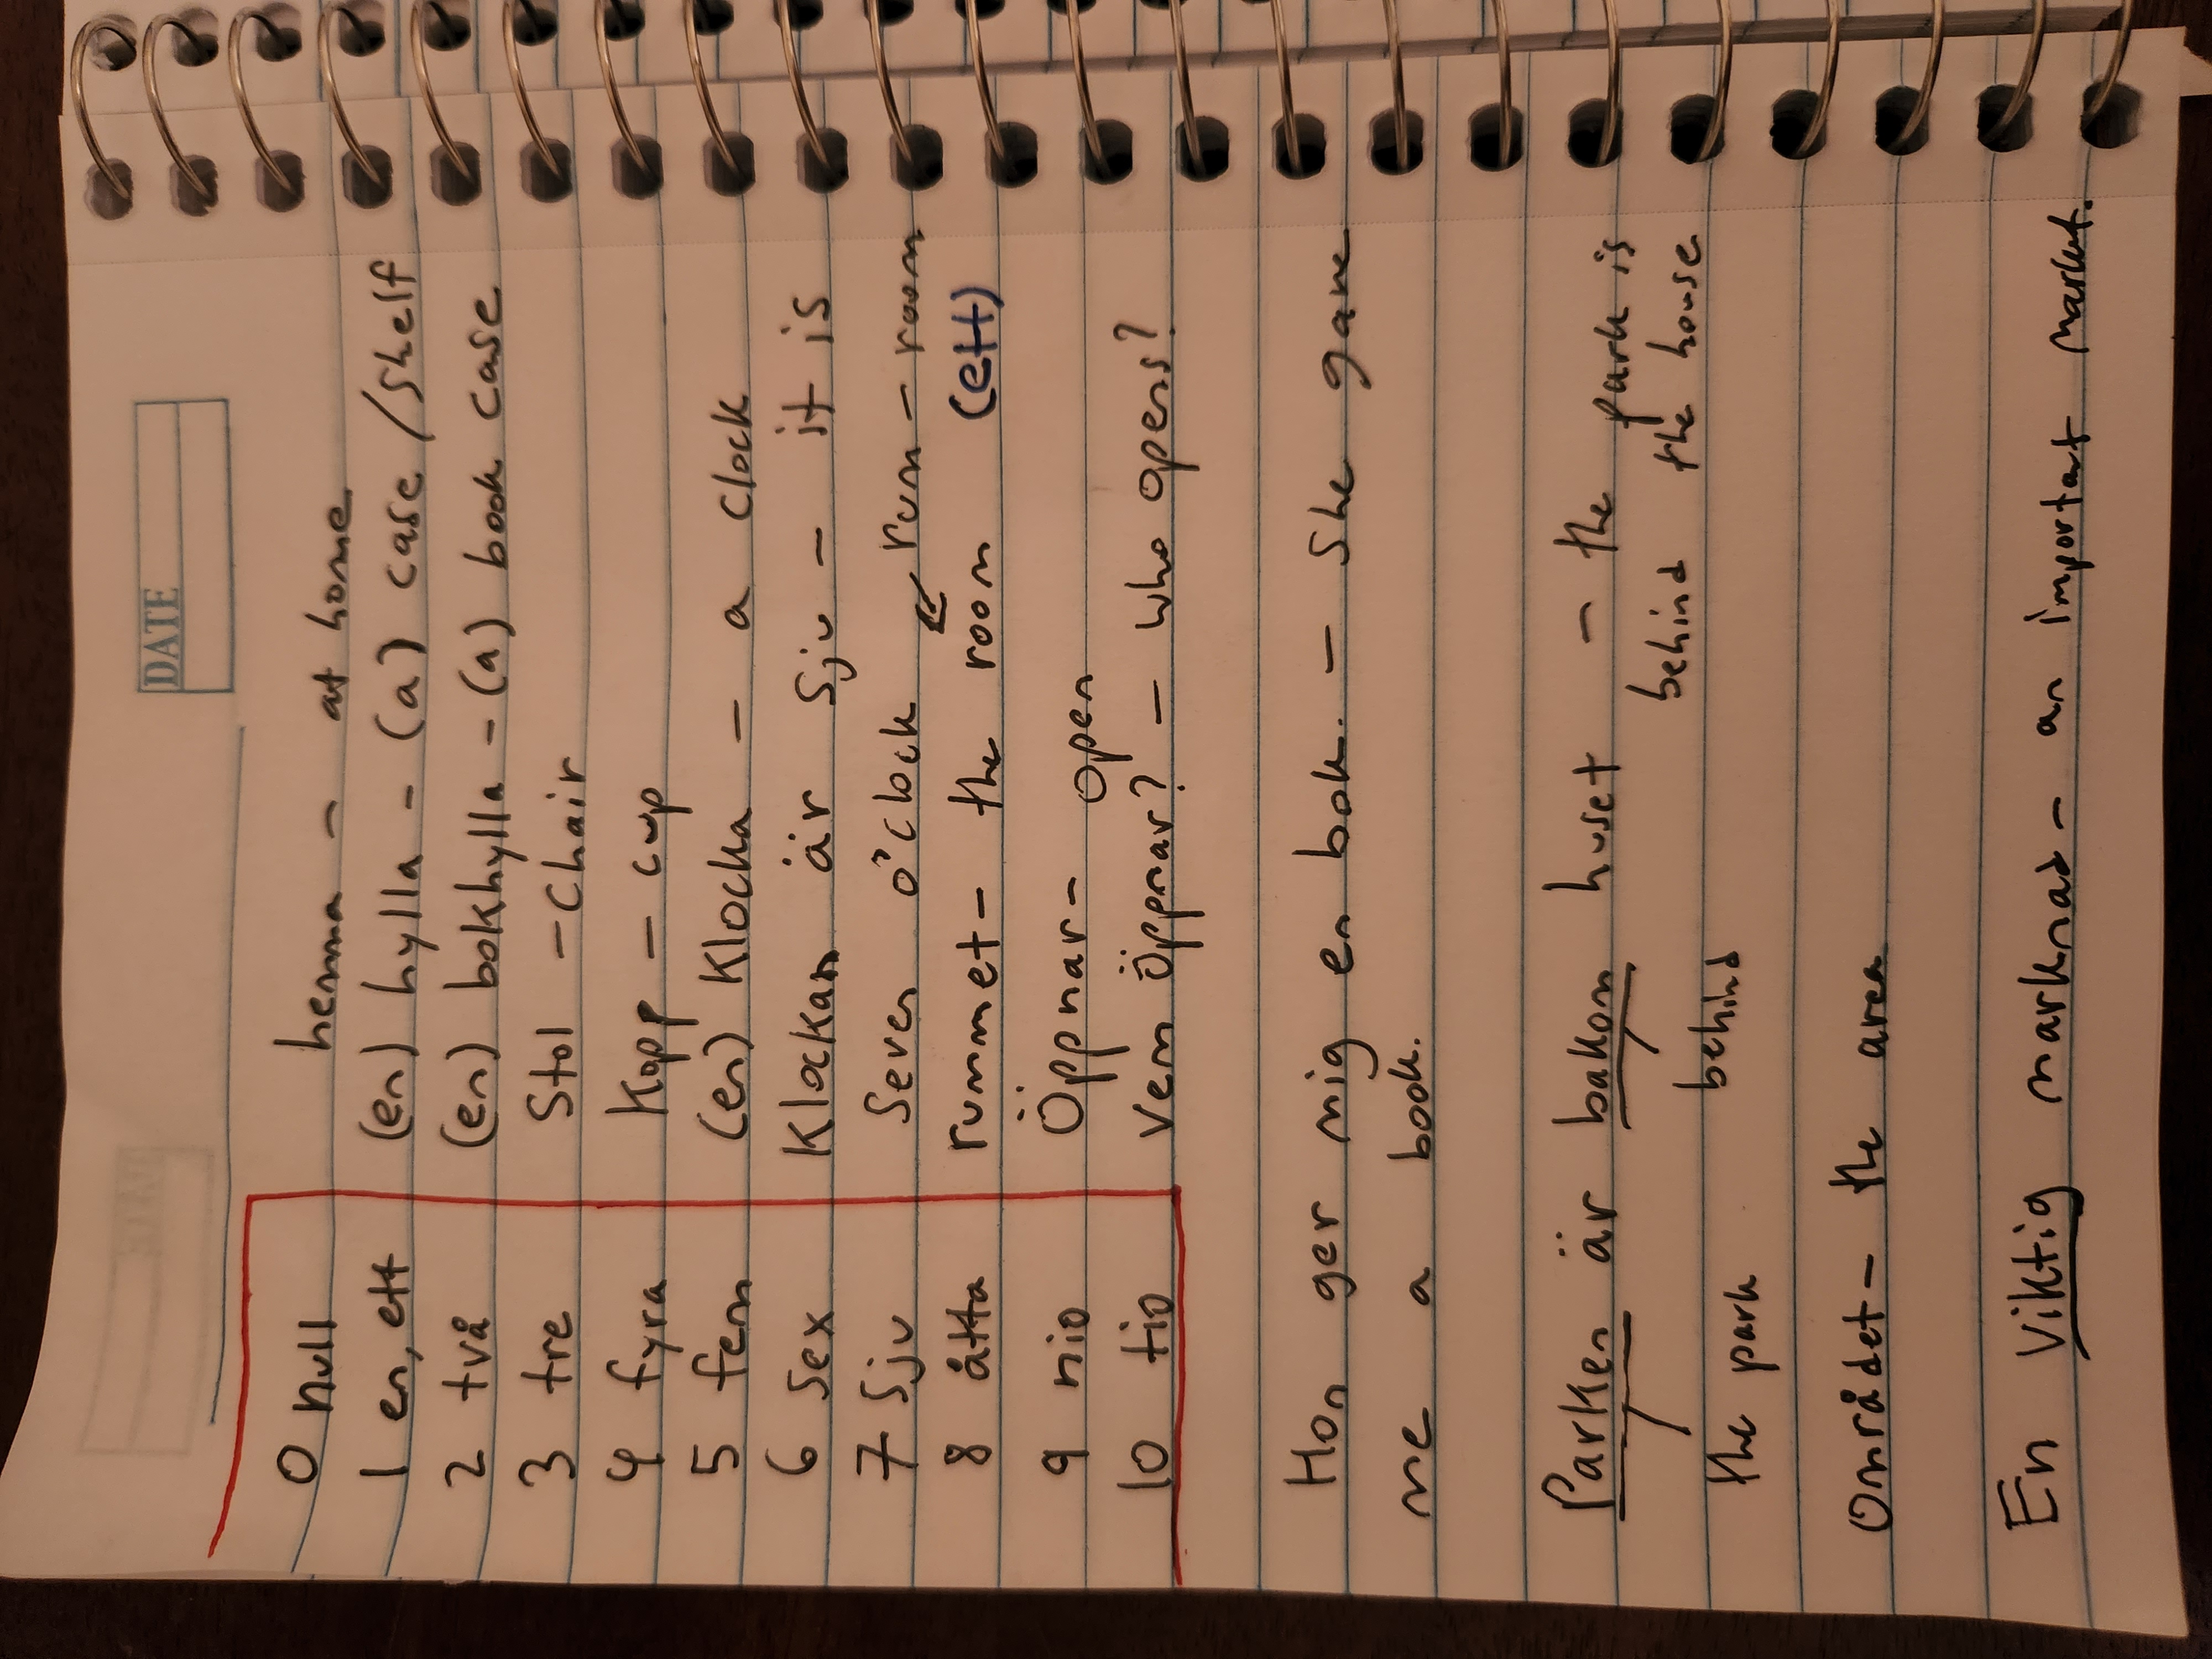 DATE
0 null
1 en, ett
2 två
3 tre
4 fyra
5 fem
6 sex
7 Sju
8 åtta
9 nio
10 tio
hemma - at home
(en) hylla - (a) case /Shelf
(en) bokhylla - (a) book case
Stol - Chair
Kopp - cup
(en) Klocka - a clock
Klockan är sju - it is
Seven o'clock
rum - room
rummet - the room (ett)
Öppnar - open
Vem Öppnar? - who opens?
Hon ger mig en bok. - She gave
me a book.
Parken är bakom huset - the park is
behind the house
the park behind
Området - the area
En Viktig marknad - an important market.